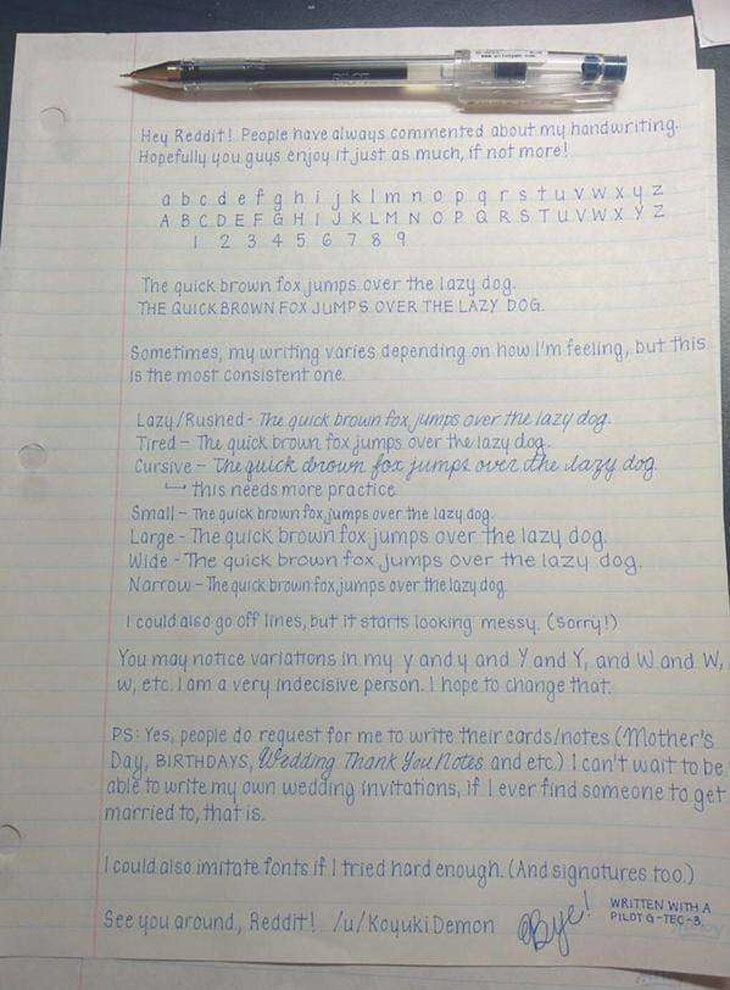 PILOT
Hey Reddit! People have always commented about my handwriting.
Hopefully you guys enjoy it just as much, if not more!
a b c d e f g h i j k l m n o p q r s t u v w x y z
A B C D E F G H I J K L M N O P Q R S T U V W X Y Z
1 2 3 4 5 6 7 8 9
The quick brown fox jumps over the lazy dog.
THE QUICK BROWN FOX JUMPS OVER THE LAZY DOG.
Sometimes, my writing varies depending on how I'm feeling, but this
is the most consistent one.
Lazy/Rushed - The quick brown fox jumps over the lazy dog.
Tired - The quick brown fox jumps over the lazy dog.
Cursive - The quick brown fox jumps over the lazy dog.
↳ this needs more practice
Small - The quick brown fox jumps over the lazy dog.
Large - The quick brown fox jumps over the lazy dog.
Wide - The quick brown fox jumps over the lazy dog.
Narrow - The quick brown fox jumps over the lazy dog.
I could also go off lines, but it starts looking messy. (Sorry!)
You may notice variations in my y and y and Y and Y, and W and W,
w, etc. I am a very indecisive person. I hope to change that.
PS: Yes, people do request for me to write their cards/notes (Mother's
Day, BIRTHDAYS, Wedding Thank You Notes and etc.) I can't wait to be
able to write my own wedding invitations, if I ever find someone to get
married to, that is.
I could also imitate fonts if I tried hard enough. (And signatures too.)
See you around, Reddit! /u/KoyukiDemon Bye!
WRITTEN WITH A
PILOT G-TEC-3